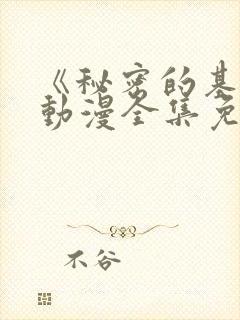 《秘密的基
动漫全集免
不谷